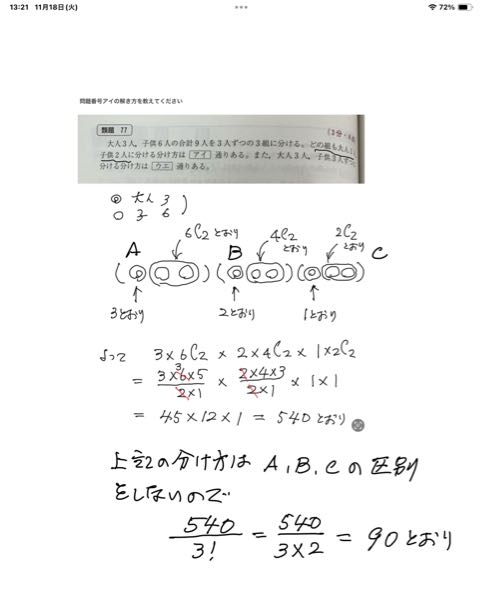 13:21 11月18日(火)
72%
問題番号アイの解き方を教えてください
類題 77
大人3人,子供6人の合計9人を3人ずつの3組に分ける。どの組も大人1
子供2人に分ける分け方は アイ 通りある。また,大人3人,子供3人
分ける分け方は ウエ 通りある。
◎ 大人 3
○ 子 6
6C2とおり 4C2とおり 2C2とおり
A B C
3とおり 2とおり 1とおり
よって 3×6C2 × 2×4C2 × 1×2C2
= 3×6×5/2×1 × 2×4×3/2×1 × 1×1
= 45×12×1 = 540とおり
上記の分け方は A,B,Cの区別
をしないので
540/3! = 540/3×2 = 90とおり